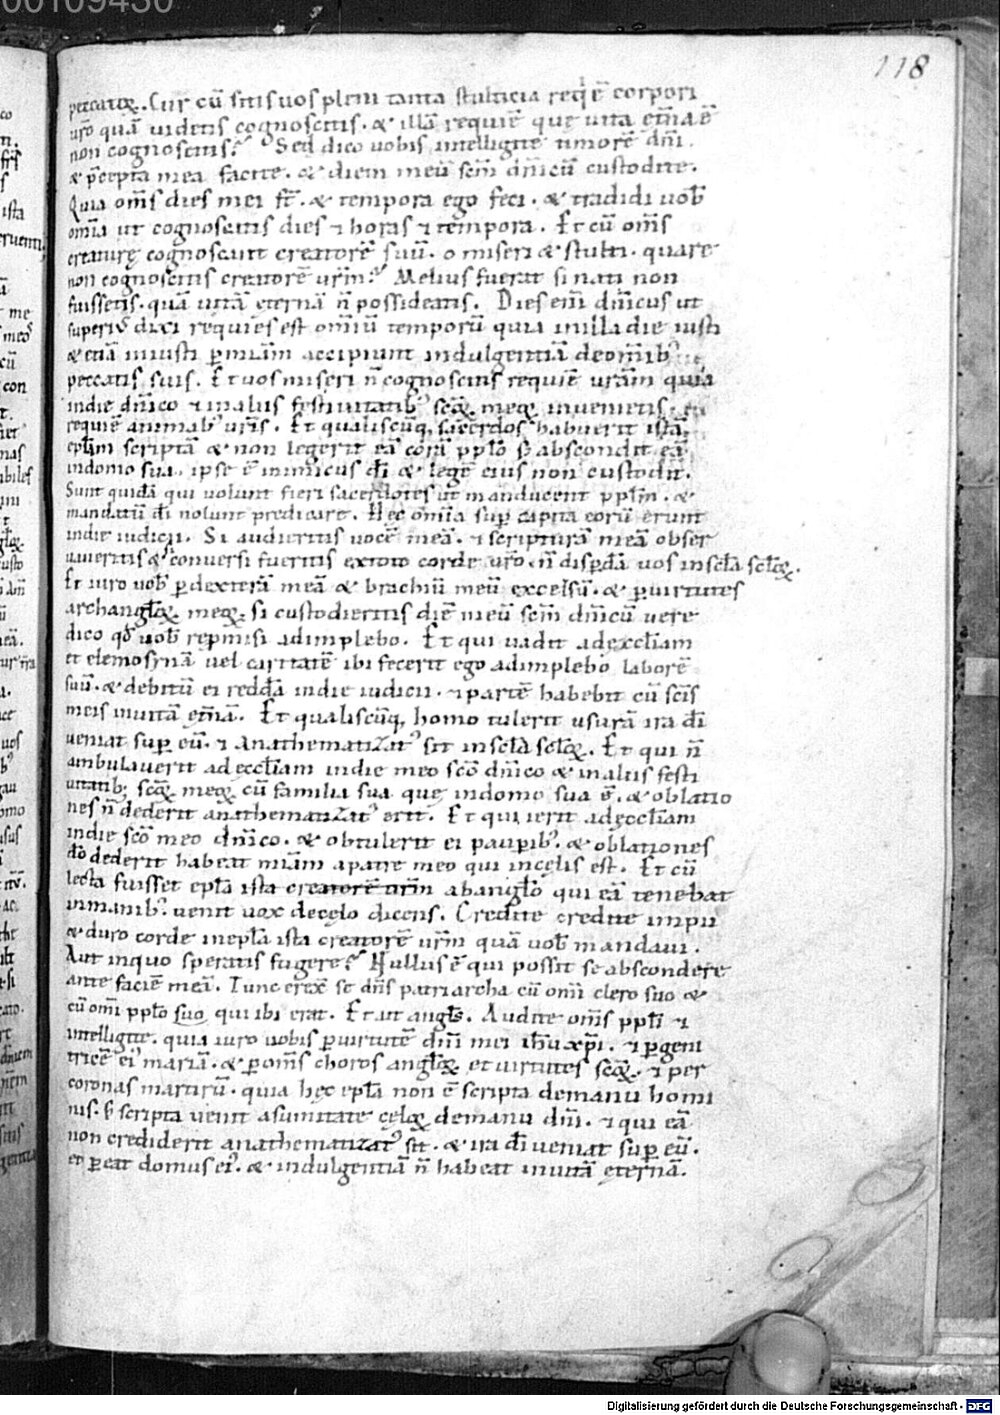 00109430
118
peccatoꝝ. Cur cū sitis uos pleni tanta stulticia reqͥē corpori
ur̄o quā uidetis cognoscitis. & illā requiē quę uita et̄na ē
non cognoscitis? Sed dico uobis intelligite timorē dn̄i.
& p̄cepta mea facite. & diem meū sc̄m dn̄icū custodite.
Quia om̄s dies mei st̄. & tempora ego feci. & tradidi uob̄
om̄ia ut cognoscatis dies ⁊ horas ⁊ tempora. Et cū om̄s
creaturę cognoscunt creatorē suū. o miseri & stulti. quare
non cognoscitis creatorē ur̄m? Melius fuerat si nati non
fuissetis. quā uitā ęternā n̄ possideatis. Dies eni̅ dn̄icus ut
superiꝰ dixi requies est om̄iū temporū quia in illa die iusti
& etiā iniusti ꝑ miām accipiunt indulgentiā de om̄ibꝰ
peccatis suis. Et uos miseri n̄ cognoscitis requiē ur̄am quia
in die dn̄ico ⁊ in alius festiuitatibꝰ sc̄oꝝ meoꝝ inuenietis
requiē animabꝰ ur̄is. Et qualiscūq, sacerdos habuerit istā
epl̄am scriptā & non legerit eā corā ppl̄o s; abscondit eā
in domo sua. ipse ē inimicus dī & legē eius non custodit.
Sunt quidā qui uolunt fieri sacerdotes ut manducent ppl̄m. &
mandatū dī nolunt predicare. Hęc om̄ia suꝑ capita eorū erunt
in die iudicii. Si audieritis uocē meā. ⁊ scripturā meā obser
uaueritis & conuersi fueritis ex toto corde ur̄o. n̄ disꝑdā uos in scl̄a scl̄oꝝ.
Et iuro uob̄ ꝑ dexterā meā & brachiū meū excelsū. & ꝑ uirtutes
archangl̄oꝝ meoꝝ. si custodieritis diē meū sc̄m dn̄icū uere
dico qđ uob̄ repmisi adimplebo. Et qui uadit ad ęccl̄iam
et elemosynā uel caritatē ibi fecerit ego adimplebo laborē
suū. & debitū ei reddā in die iudicii. ⁊ partē habebit cū sc̄is
meis in uitā et̄nā. Et qualiscūq, homo tulerit usurā ira dī
ueniat suꝑ eū. ⁊ anathematizatꝰ sit in scl̄a scl̄oꝝ. Et qui n̄
ambulauerit ad ęccl̄iam in die meo sc̄o dn̄ico & in aliis festi
uitatib; sc̄oꝝ meoꝝ cū familia sua quę in domo sua ē. & oblatio
nes n̄ dederit anathematizatꝰ erit. Et qui ierit ad ęccl̄iam
in die sc̄o meo dn̄ico. & obtulerit ei pauꝑibꝰ. & oblationes
dō dederit habeat miām a patre meo qui in cęlis est. Et cū
lecta fuisset epl̄a ista creatorē ur̄m ab anglo̅ qui eā tenebat
in manibꝰ. uenit uox de cęlo dicens. Credite credite impii
& duro corde in epl̄a ista creatorē ur̄m quā uob̄ mandaui.
Aut in quo speratis fugere? Nullus ē qui possit se abscondere
ante faciē meā. Tunc erexͭ se dn̄s patriarcha cū omi̅ clero suo &
cū omi̅ ppl̄o suo qui ibi erat. Et ait angl̄s. Audite om̄s ppl̄i ⁊
intelligite. quia iuro uobis ꝑ uirtutē dn̄i mei ihū xp̄i. ⁊ ꝑ geni
tricē eiꝰ mariā. & ꝑ om̄s choros angl̄oꝝ et uirtutes sc̄oꝝ. ⁊ per
coronas martirū. quia hęc epl̄a non ē scripta de manu homi
nis. s; scripta uenit a sumitate cęloꝝ de manu dn̄i. ⁊ qui eā
non crediderit anathematizatꝰ sit. & ira dī ueniat suꝑ eū.
et ꝑeat domus eiꝰ. & indulgentiā n̄ habeat in uitā ęternā.
Digitalisierung gefördert durch die Deutsche Forschungsgemeinschaft - DFG